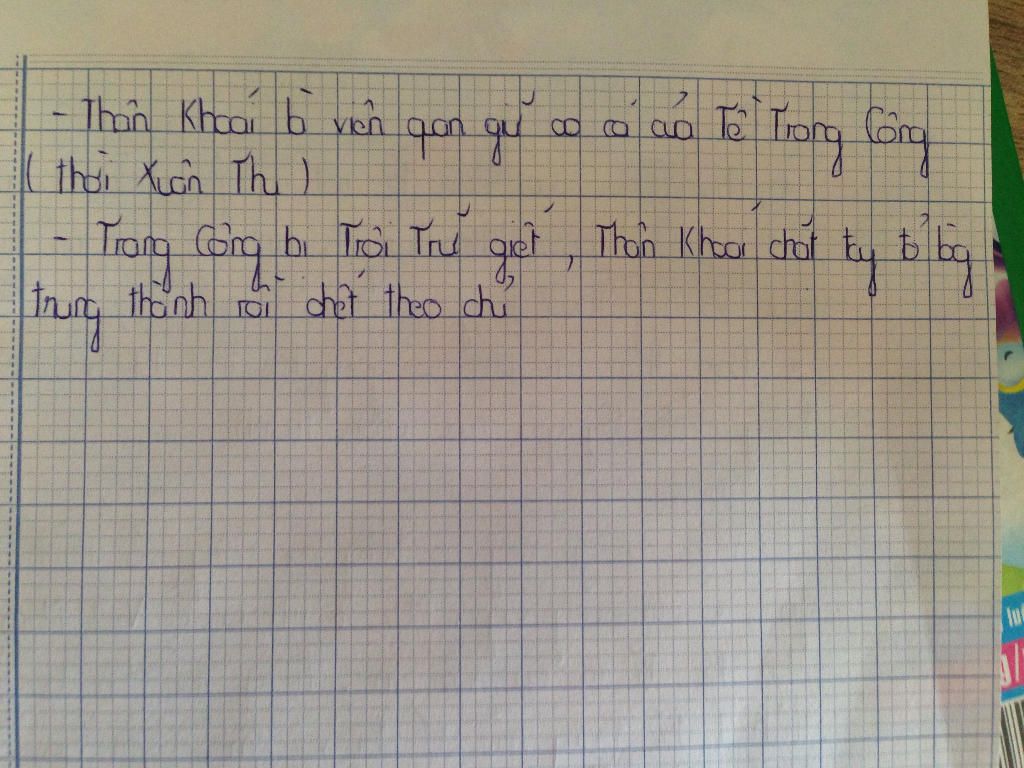 - Thân Khoái là viên quan giữ ao cá của Tề Trang Công
( thời Xuân Thu )
- Trang Công bị Thôi Trữ giết, Thân Khoái chặt tay tỏ lòng
trung thành rồi chết theo chủ